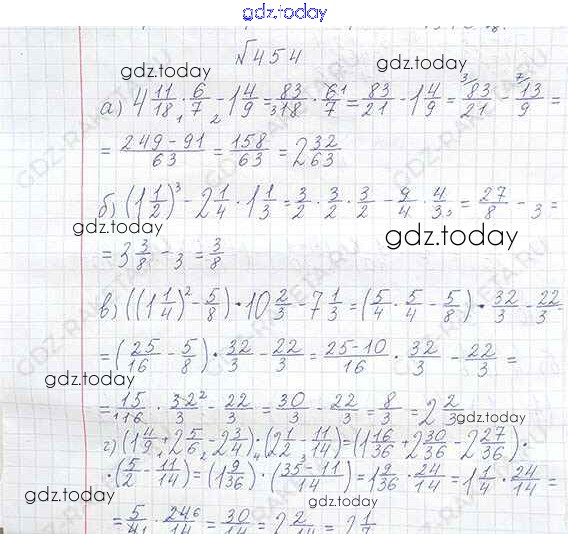 gdz.today
№454
gdz.today
а) 4 11/18 · 6/7 - 1 4/9 = 83/18 · 6/7 = 83/21 - 1 4/9 = 83/21 - 13/9 =
= (249-91)/63 = 158/63 = 2 32/63
gdz.today
б) (1 1/2)³ - 2 1/4 · 1 1/3 = 3/2 · 3/2 · 3/2 - 9/4 · 4/3 = 27/8 - 3 =
gdz.today
gdz.today
= 3 3/8 - 3 = 3/8
в) ((1 1/4)² - 5/8) · 10 2/3 - 7 1/3 = (5/4 · 5/4 - 5/8) · 32/3 - 22/3 =
= (25/16 - 5/8) · 32/3 - 22/3 = (25-10)/16 · 32/3 - 22/3 =
gdz.today
= 15/16 · 32/3 - 22/3 = 30/3 - 22/3 = 8/3 = 2 2/3
gdz.today
г) (1 4/9 + 2 5/6 - 2 3/4) · (2 1/2 - 11/14) = (1 16/36 + 2 30/36 - 2 27/36) ·
· (5/2 - 11/14) = (1 9/36) · ((35-11)/14) = 1 9/36 · 24/14 = 1 1/4 · 24/14 =
gdz.today
gdz.today
gdz.today
= 5/4 · 24/14 = 30/14 = 2 2/14 = 2 1/7